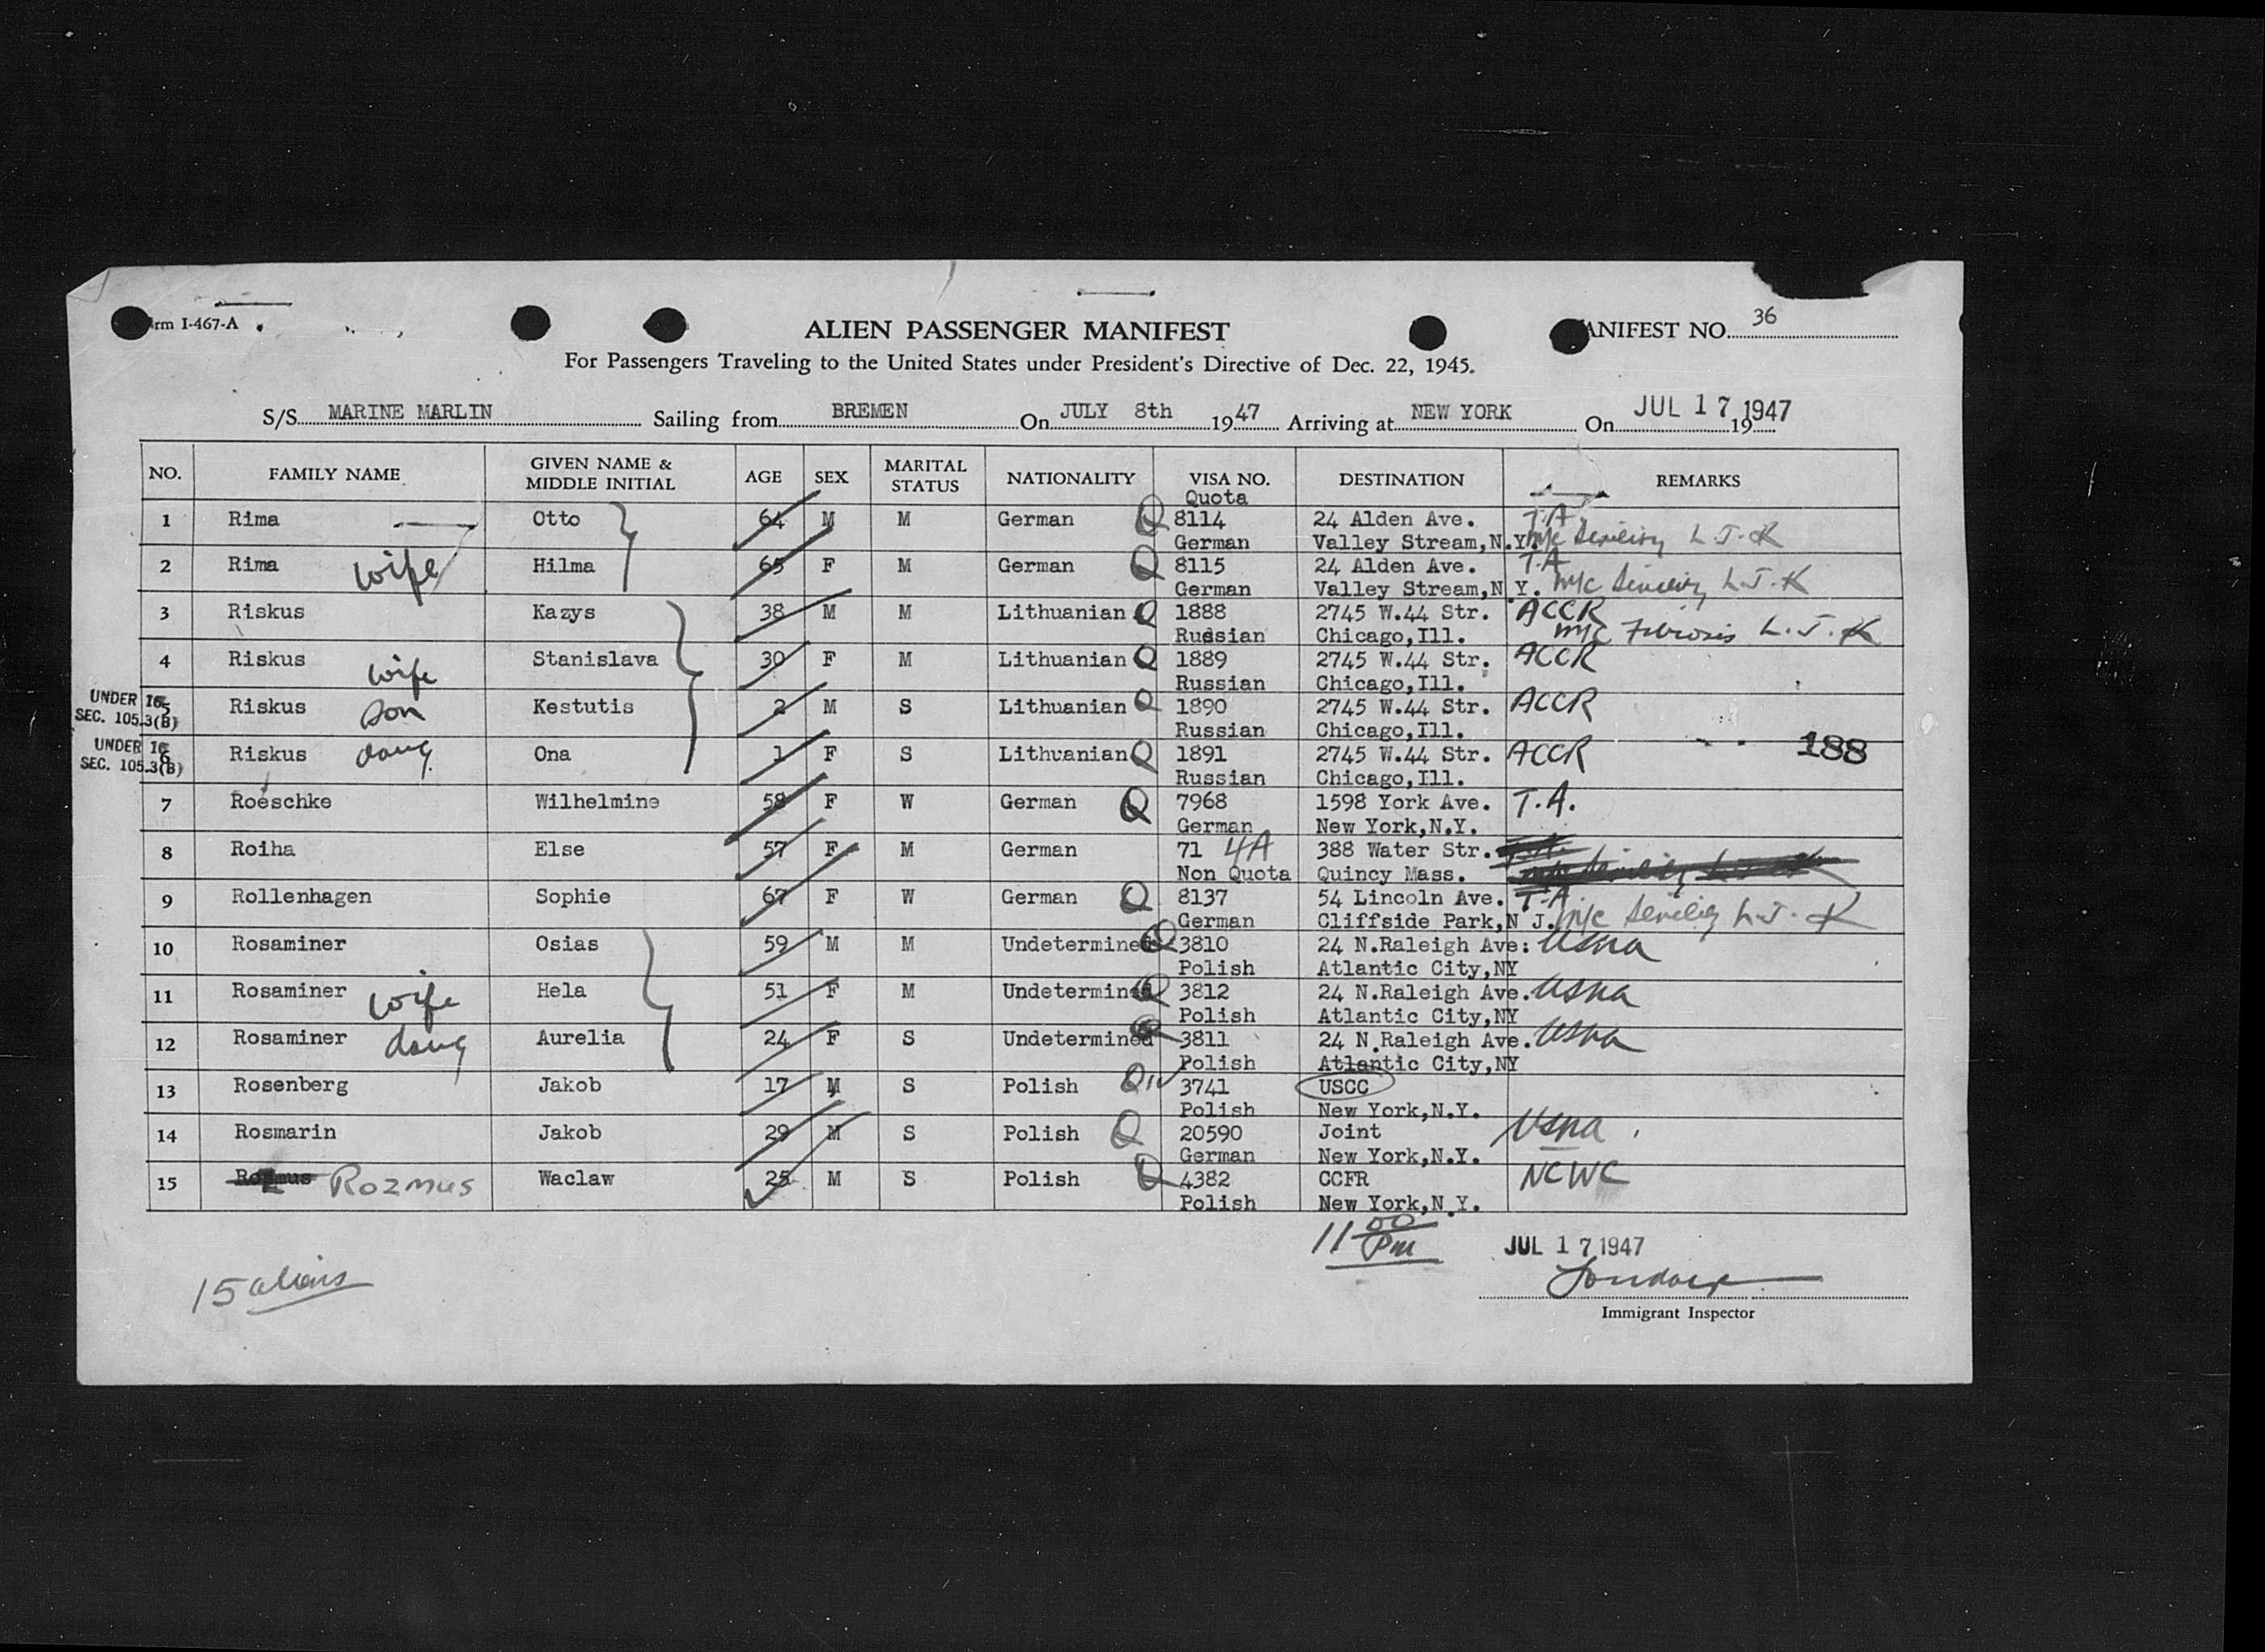 Form I-467-A
ALIEN PASSENGER MANIFEST
MANIFEST NO. 36
For Passengers Traveling to the United States under President's Directive of Dec. 22, 1945.
S/S. MARINE MARLIN Sailing from BREMEN On JULY 8th 1947 Arriving at NEW YORK On JUL 17 1947 19
NO. FAMILY NAME GIVEN NAME & MIDDLE INITIAL AGE SEX MARITAL STATUS NATIONALITY VISA NO. DESTINATION REMARKS
Quota
1 Rima Otto 64 M M German Q 8114 24 Alden Ave. T.A.
German Valley Stream,N.Y. M/C Senility L.J.K
2 Rima wife Hilma 65 F M German Q 8115 24 Alden Ave. T.A
German Valley Stream,N.Y. M/C Senility L.J.K
3 Riskus Kazys 38 M M Lithuanian Q 1888 2745 W.44 Str. ACCR
Russian Chicago,Ill. M/C Fibrosis L.J.K
4 Riskus wife Stanislava 30 F M Lithuanian Q 1889 2745 W.44 Str. ACCR
Russian Chicago,Ill.
UNDER 16 SEC. 105.3(B)
5 Riskus son Kestutis 2 M S Lithuanian Q 1890 2745 W.44 Str. ACCR
Russian Chicago,Ill.
UNDER 16 SEC. 105.3(B)
6 Riskus daug. Ona 1 F S Lithuanian Q 1891 2745 W.44 Str. ACCR 188
Russian Chicago,Ill.
7 Roeschke Wilhelmine 58 F W German Q 7968 1598 York Ave. T.A.
German New York,N.Y.
8 Roiha Else 57 F M German 71 4A 388 Water Str.
Non Quota Quincy Mass.
9 Rollenhagen Sophie 67 F W German Q 8137 54 Lincoln Ave. T.A
German Cliffside Park,N J. M/C Senility L.J.K
10 Rosaminer Osias 59 M M Undetermined Q 3810 24 N.Raleigh Ave: USNA
Polish Atlantic City,NY
11 Rosaminer wife Hela 51 F M Undetermined Q 3812 24 N.Raleigh Ave. USNA
Polish Atlantic City,NY
12 Rosaminer daug Aurelia 24 F S Undetermined Q 3811 24 N.Raleigh Ave. USNA
Polish Atlantic City,NY
13 Rosenberg Jakob 17 M S Polish Q 3741 USCC
Polish New York,N.Y.
14 Rosmarin Jakob 29 M S Polish Q 20590 Joint USNA
German New York,N.Y.
15 Rozmus Waclaw 25 M S Polish Q 4382 CCFR NCWC
Polish New York,N.Y.
11 00 Pm
JUL 17 1947
15 aliens
Immigrant Inspector